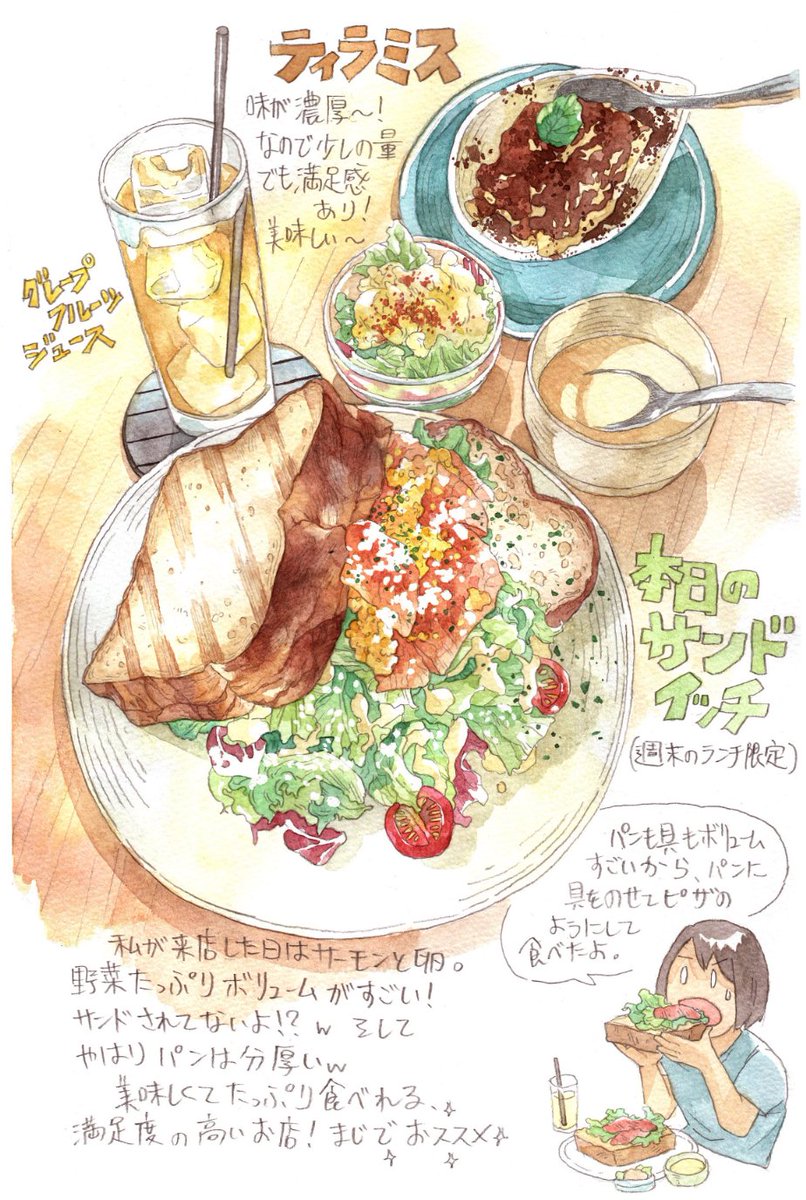 ティラミス
味が濃厚〜!
なので少しの量
でも満足感
あり!
美味しい〜
グレープ
フルーツ
ジュース
本日の
サンド
イッチ
(週末のランチ限定)
パンも具もボリューム
すごいから、パンに
具をのせてピザの
ようにして
食べたよ。
私が来店した日はサーモンと卵。
野菜たっぷりボリュームがすごい!
サンドされてないよ!?w そして
やはりパンは分厚いw
美味しくてたっぷり食べれる、
満足度の高いお店!まじでおススメ